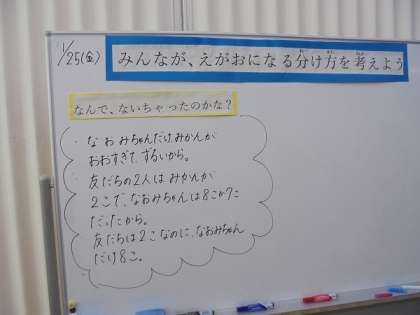 1/25(金)
みんなが、えがおになる分け方を考えよう
なんで、ないちゃったのかな?
・なおみちゃんだけみかんが
おおすぎて、ずるいから。
・友だちの2人はみかんが
2こで、なおみちゃんは8こか7こ
だったから。
・友だちは2こなのに、なおみちゃん
だけ8こ。